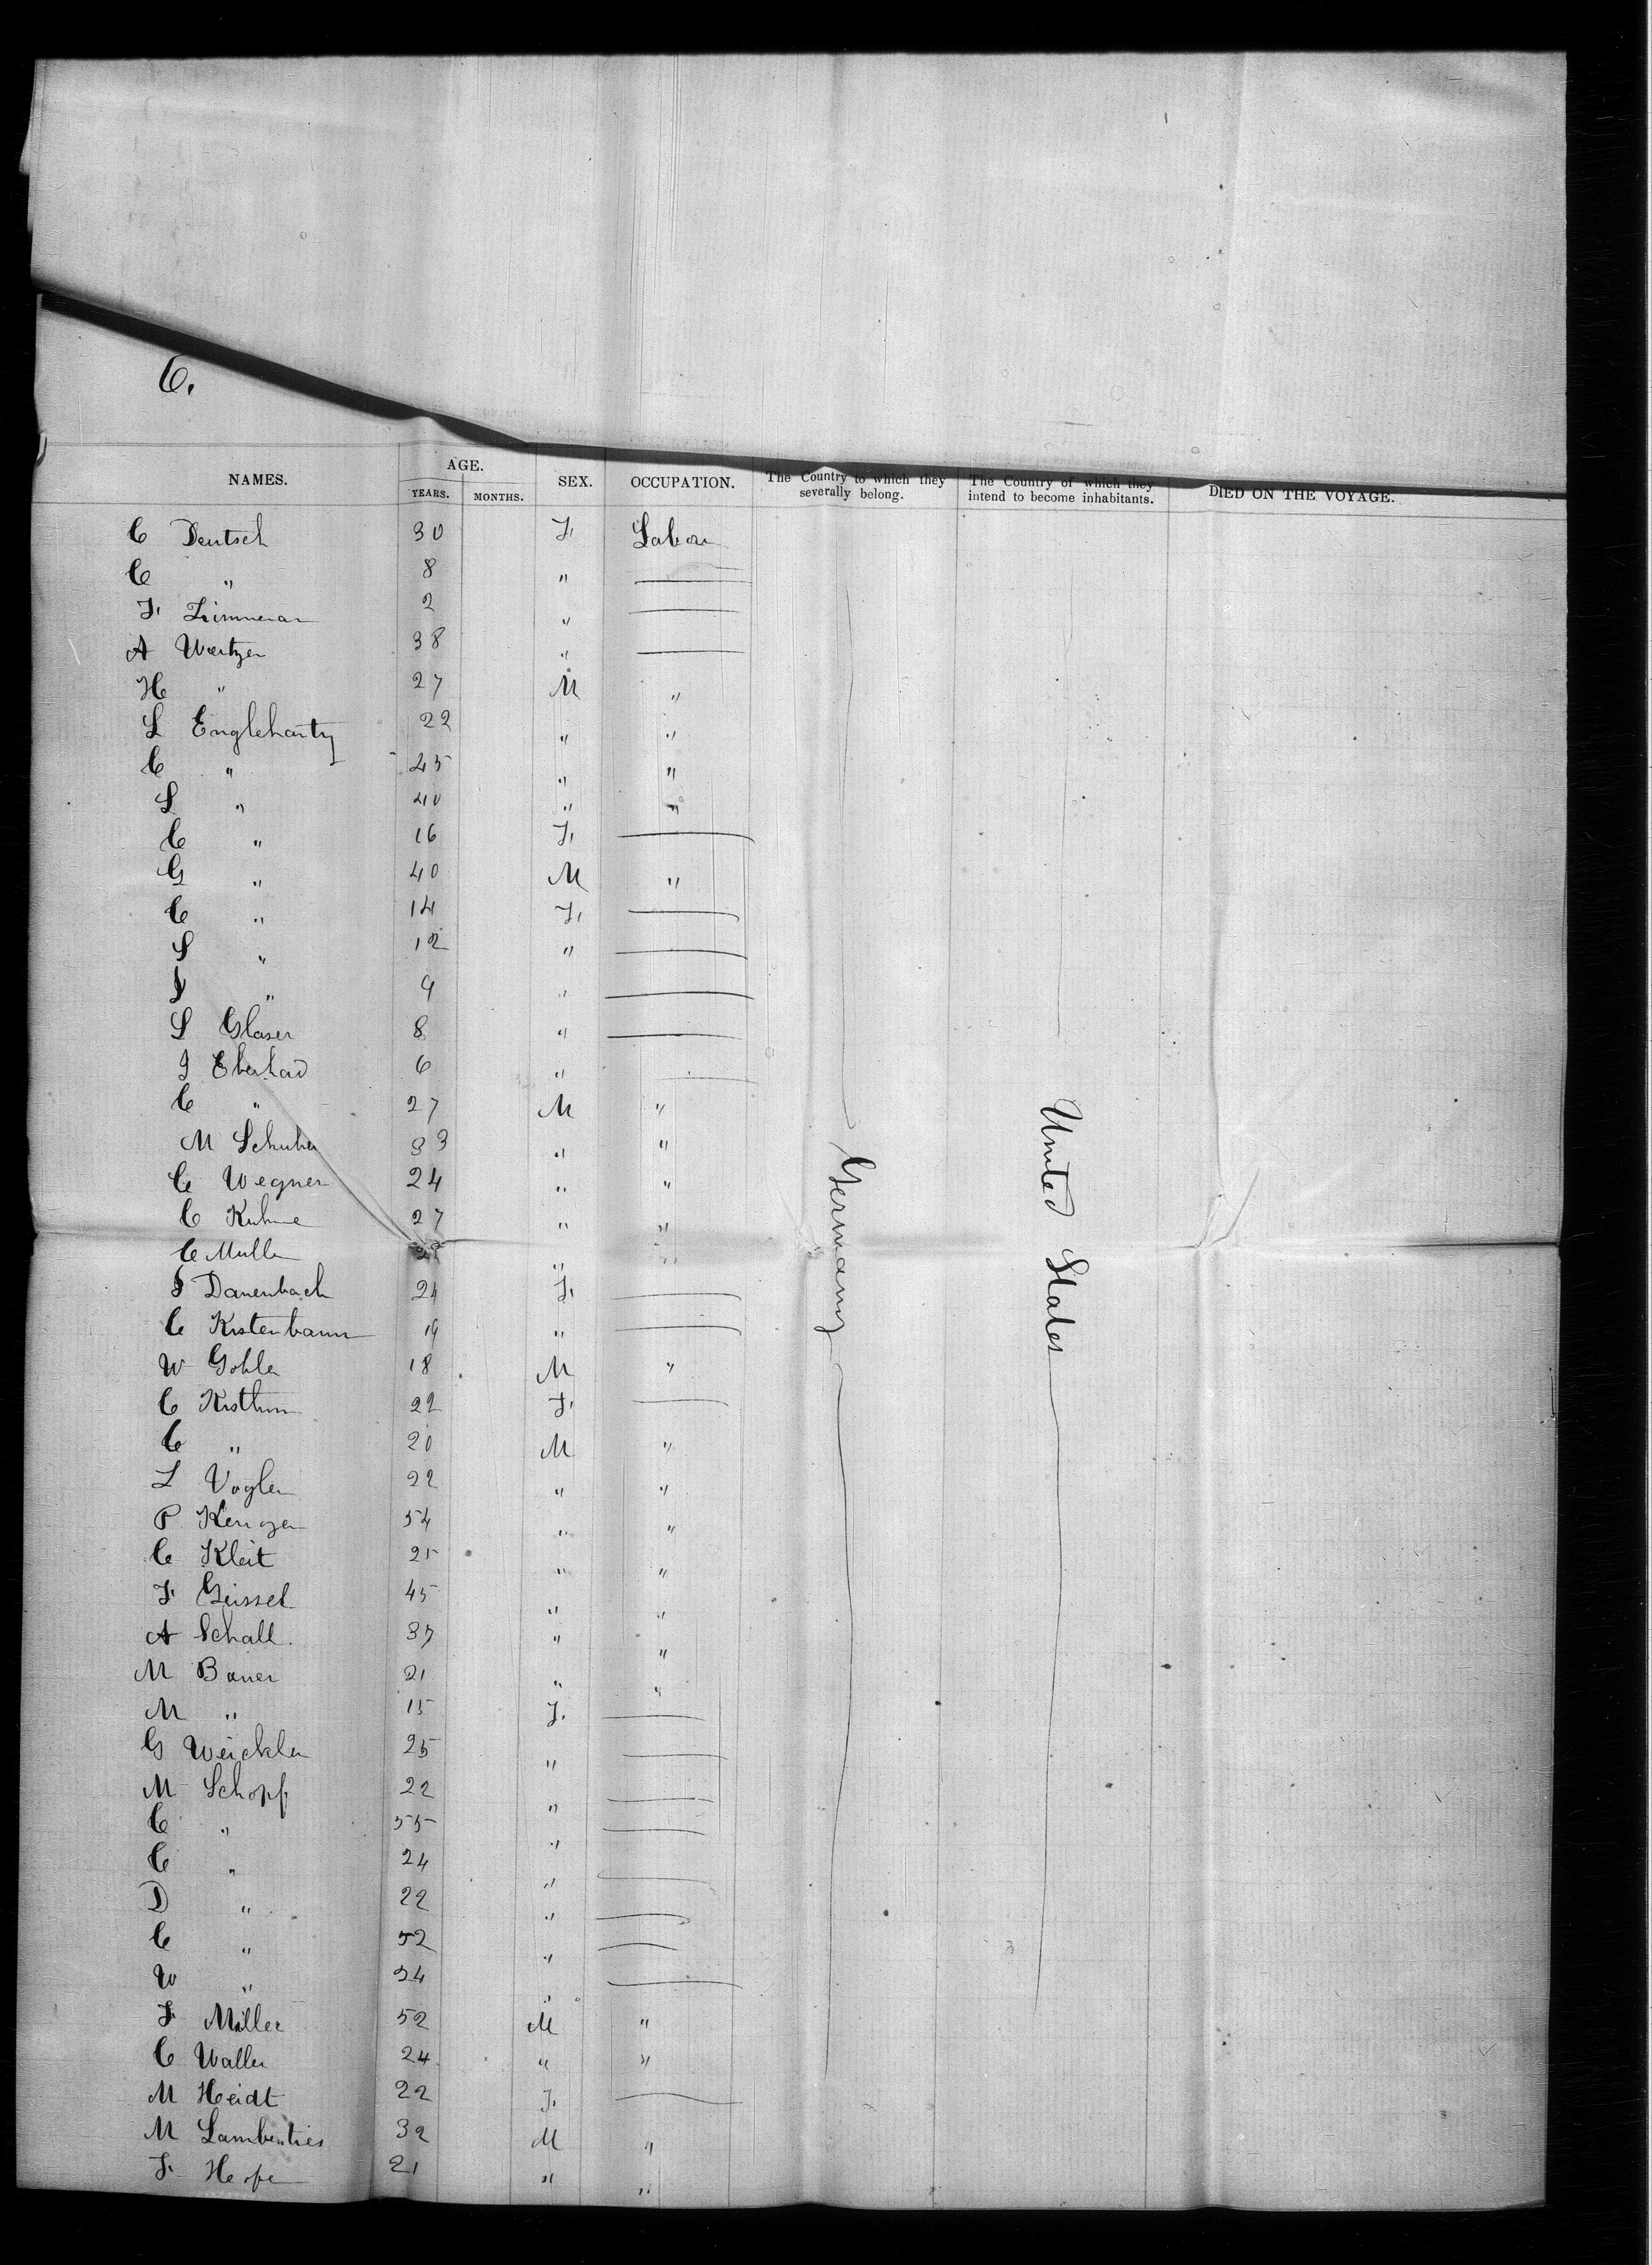 6.
NAMES. AGE. YEARS. MONTHS. SEX. OCCUPATION. The Country to which they severally belong. The Country of which they intend to become inhabitants. DIED ON THE VOYAGE.
C Deutsch 30 F. Labor
C " 8 " —
F. 2 " —
A Wertzer 38 " —
H " 27 M "
L Englehartz 22 " "
C " 45 " "
L " 40 " "
C " 16 F. —
G " 40 M "
C " 14 F. —
S " 12 " —
" 9 " —
S Glaser 8 " —
J Eberhard 6 " —
C " 27 M "
M Schuher 33 " "
C Wegner 24 " "
C Kuhne 27 " "
C Muller " "
S Danenbach 24 F. —
C Kistenbaum 19 " —
W Gohler 18 M "
C 22 F. —
C " 20 M "
L Vogler 22 " "
P 54 " "
C Kleit 25 " "
F. Geissel 45 " "
A Schall 37 " "
M Baner 21 " "
M " 15 F. —
G Weickler 25 " —
M Schopf 22 " —
C " 55 " —
C " 24 " —
D " 22 " —
C " 52 " —
W " 34 " —
F. Miller 52 M "
C Waller 24 " "
M Heidt 22 F. —
M Lamberties 32 M "
F. 21 " "
Germany
United States